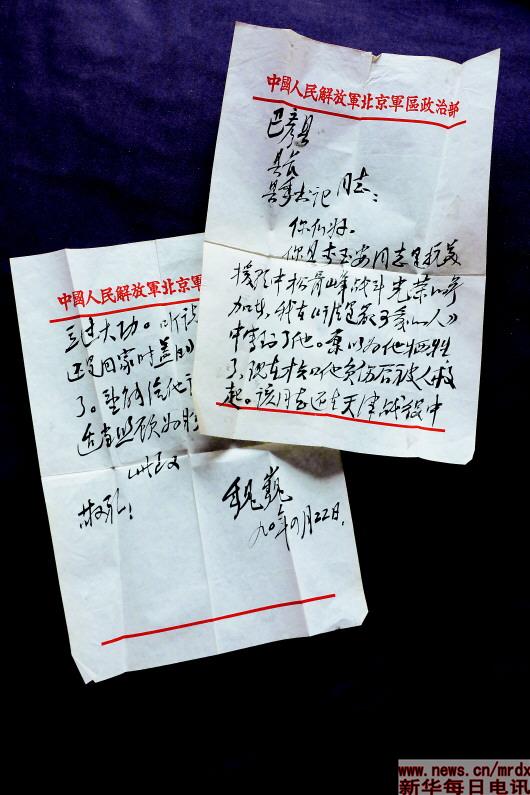 中國人民解放軍北京軍區政治部
巴彦县
县长
县委书记 同志：
你们好。
你县李玉安同志是抗美
援朝中松骨峰战斗光荣的参
加者，我在《谁是最可爱的人》
中写了他。原以为他牺牲
了，现在才知他负伤后被人救
起。该同志还在天津战役中
中國人民解放軍北京軍
立过大功。听说
还是回家时盖的
了。望能给他
适当照顾为
此致
敬礼！
魏巍
九〇年四月22日.
www.news.cn/mrdx
新华每日电讯